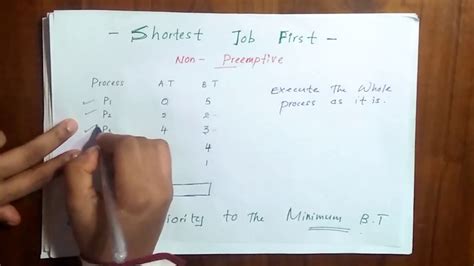 - Shortest Job First -
Non- Preemptive
Process A.T B.T
P1 0 5
P2 2 2
P3 4 3
4
1
execute The Whole
process as it is.
to The Minimum B.T